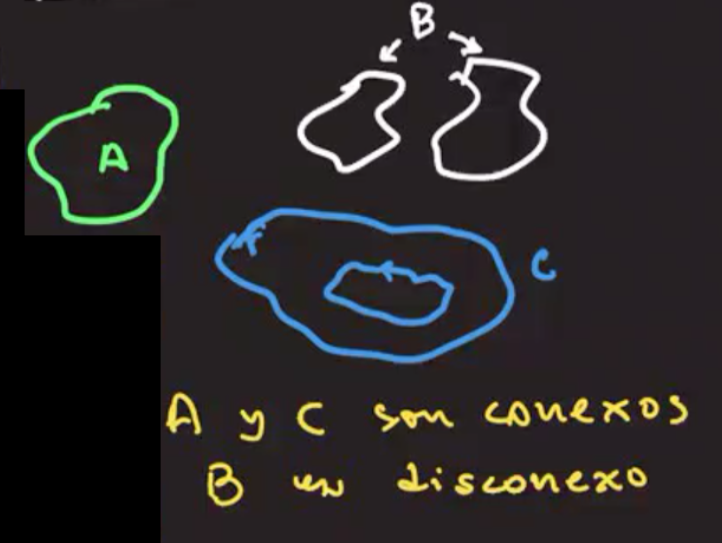 B
A
C
A y C son conexos
B es disconexo